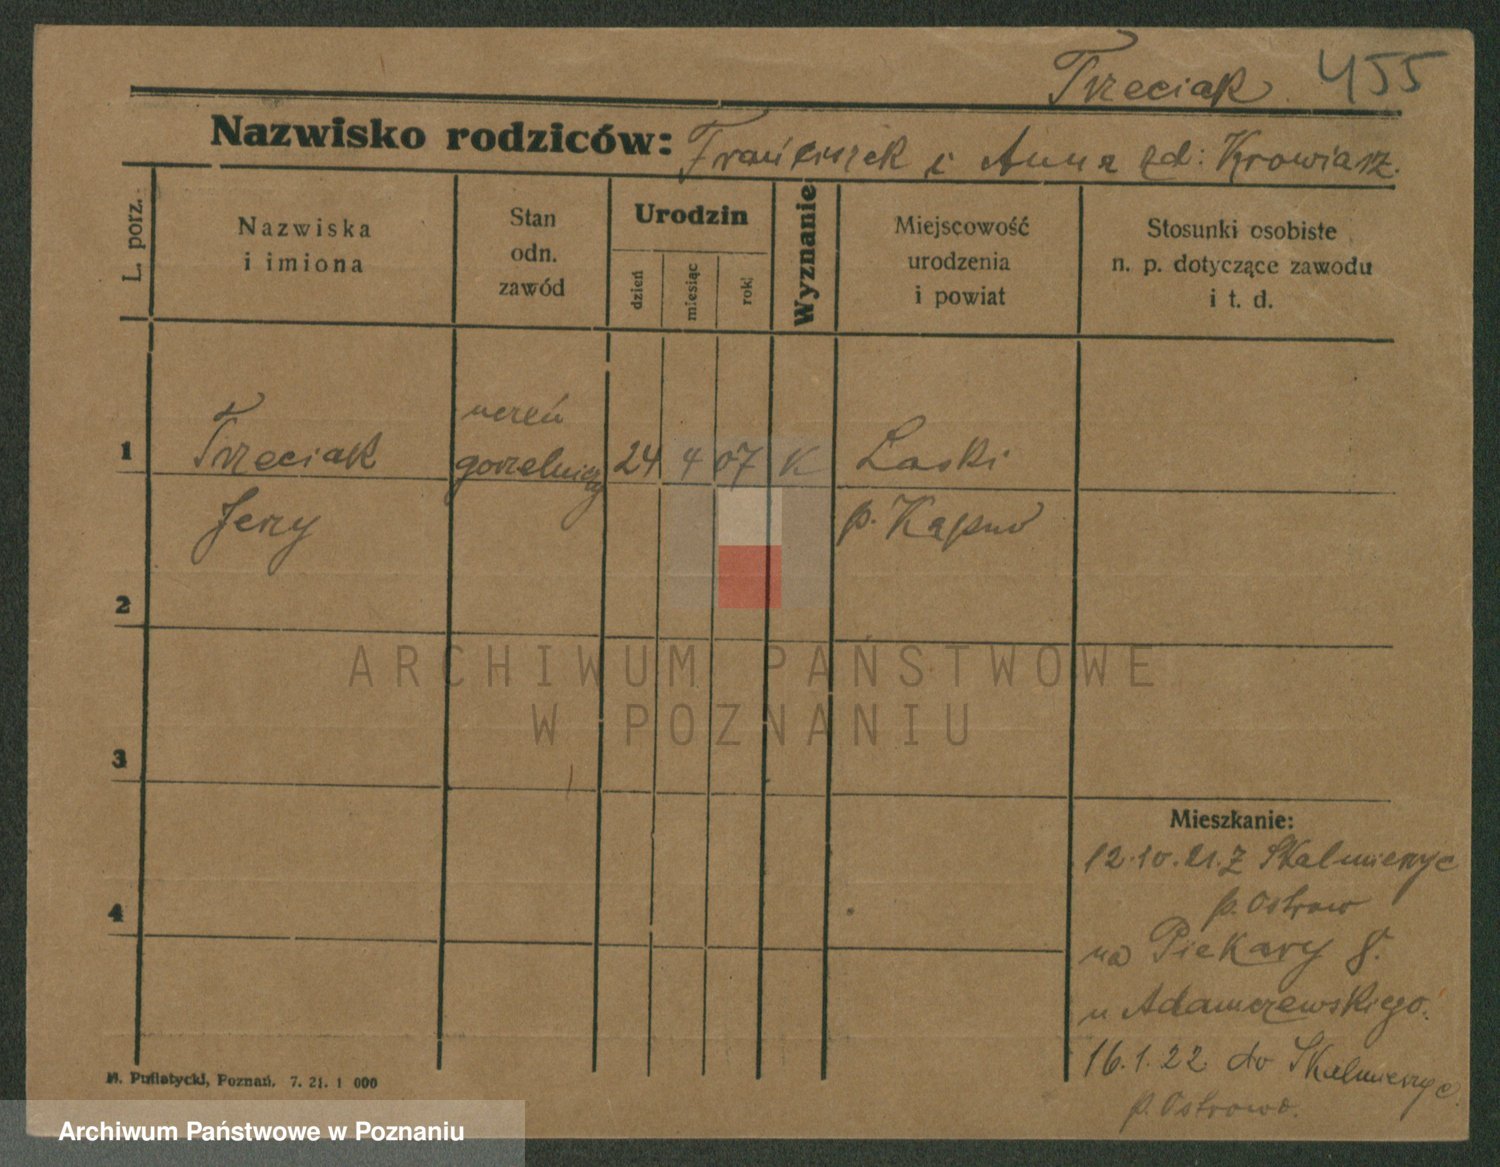 Trzeciak 455
Nazwisko rodziców: Franciszek i Anna zd: Krowiarz.
L. porz.
Nazwiska
i imiona
Stan
odn.
zawód
Urodzin
dzień
miesiąc
rok
Wyznanie
Miejscowość
urodzenia
i powiat
Stosunki osobiste
n. p. dotyczące zawodu
i t. d.
uczeń
1 Trzeciak gorzelniczy 24 4 07 K Laski
Jerzy p. Kępno
2
ARCHIWUM PAŃSTWOWE
W POZNANIU
3
Mieszkanie:
12.10.21. z Skalmierzyc
p. Ostrow
4
na Piekary 8.
u Adamczewskiego.
16.1.22 do Skalmierzyc
p. Ostrowo.
M. Putiatycki, Poznań, 7. 21. 1 000
Archiwum Państwowe w Poznaniu